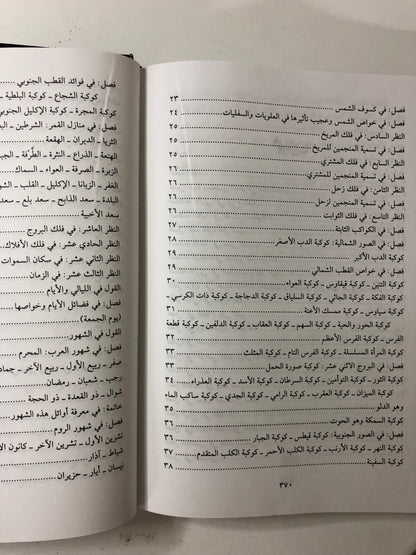 فصل: في كسوف الشمس ............ ٢٣
فصل: في خواص الشمس وعجيب تأثيرها في العلويات والسفليات ............ ٢٤
النظر السادس: في فلك المريخ ............ ٢٥
فصل: في تسمية المنجمين للمريخ ............ ٢٥
النظر السابع: في فلك المشتري ............ ٢٥
فصل: في تسمية المنجمين للمشتري ............ ٢٦
النظر الثامن: في فلك زحل ............ ٢٦
فصل: في تسمية المنجمين لزحل ............ ٢٦
النظر التاسع: في فلك الثوابت ............ ٢٦
فصل: في الكواكب الثابتة ............ ٢٧
فصل: في الصور الشمالية: كوكبة الدب الأصغر ............ ٢٨
كوكبة الدب الأكبر ............ ٢٩
فصل: في خواص القطب الشمالي ............ ٢٩
كوكبة التنين ـ كوكبة قيقاوس ـ كوكبة العواء ............ ٣٠
كوكبة الفكة ـ كوكبة الجاثي ـ كوكبة السلياق ـ كوكبة الدجاجة ـ كوكبة ذات الكرسي ـ
كوكبة سياوس ـ كوكبة ممسك الأعنة ............ ٣١
كوكبة الحور والحية ـ كوكبة السهم ـ كوكبة العقاب ـ كوكبة الدلفين ـ كوكبة قطعة
الفرس ـ كوكبة الفرس الأعظم ............ ٣٢
كوكبة المرأة المسلسلة ـ كوكبة الفرس التام ـ كوكبة المثلث ............ ٣٣
فصل: في البروج الاثني عشر: كوكبة صورة الحمل ............ ٣٣
كوكبة الثور ـ كوكبة التوأمين ـ كوكبة السرطان ـ كوكبة الأسد ـ كوكبة العذراء ............ ٣٤
كوكبة الميزان ـ كوكبة العقرب ـ كوكبة الرامي ـ كوكبة الجدي ـ كوكبة ساكب الماء
وهو الدلو ............ ٣٥
كوكبة السمكة وهو الحوت ............ ٣٦
فصل: في الصور الجنوبية: كوكبة قيطس ـ كوكبة الجبار ............ ٣٦
كوكبة النهر ـ كوكبة الأرنب ـ كوكبة الكلب الأحمر ـ كوكبة الكلب المتقدم ............ ٣٧
كوكبة السفينة ............ ٣٨
٣٧٠
فصل: في فوائد القطب الجنوبي ............
كوكبة الشجاع ـ كوكبة البلطية ـ
كوكبة المجرة ـ كوكبة الإكليل الجنوبي
فصل: في منازل القمر: الشرطين ـ
الثريا ـ الدبران ـ الهقعة ............
الهنعة ـ الذراع ـ النثرة ـ الطرفة ـ
الزبرة ـ الصرفة ـ العواء ـ السماك
الغفر ـ الزبانا ـ الإكليل ـ القلب ـ
البلدة ـ سعد الذابح ـ سعد بلع ـ
سعد الأخبية ............
النظر العاشر: في فلك البروج ............
النظر الحادي عشر: في فلك الأفلاك
النظر الثاني عشر: في سكان السموات
النظر الثالث عشر: في الزمان ............
القول في الليالي والأيام ............
فصل: في فضائل الأيام وخواصها
(يوم الجمعة) ............
القول في الشهور ............
فصل: في شهور العرب: المحرم ............
صفر ـ ربيع الأول ـ ربيع الآخر ـ
رجب ـ شعبان ـ رمضان ............
شوال ـ ذو القعدة ـ ذو الحجة ............
خاتمة: في معرفة أوائل هذه الشهور
فصل: في شهور الروم ............
تشرين الأول ـ تشرين الآخر ـ كانون
شباط ـ آذار ............
نيسان ـ أيار ـ حزيران ............